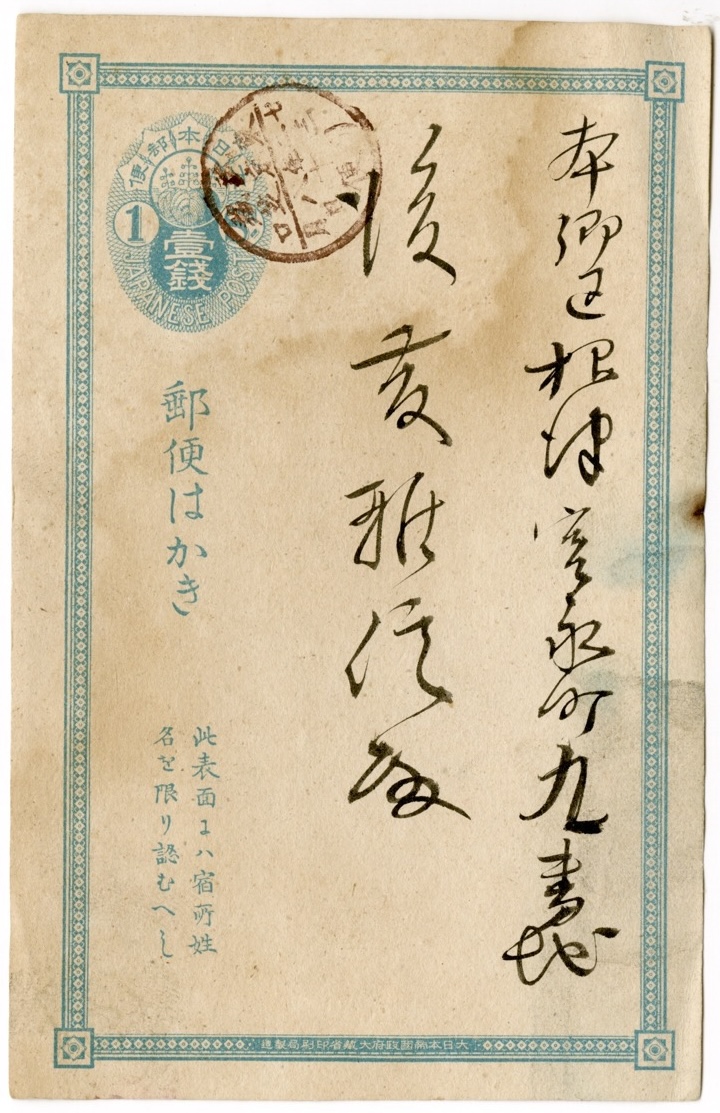 本郷区根津宮永町九番地
後藤雅信殿
大日本郵便
1
壹錢
JAPANESE POST
郵便はかき
此表面ニハ宿所姓
名を限り認むへし
大日本帝國政府大藏省印刷局製造